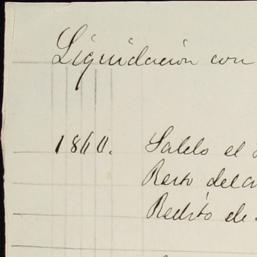 Liquidación con
1860. Saldo el
Resto del
Redito de